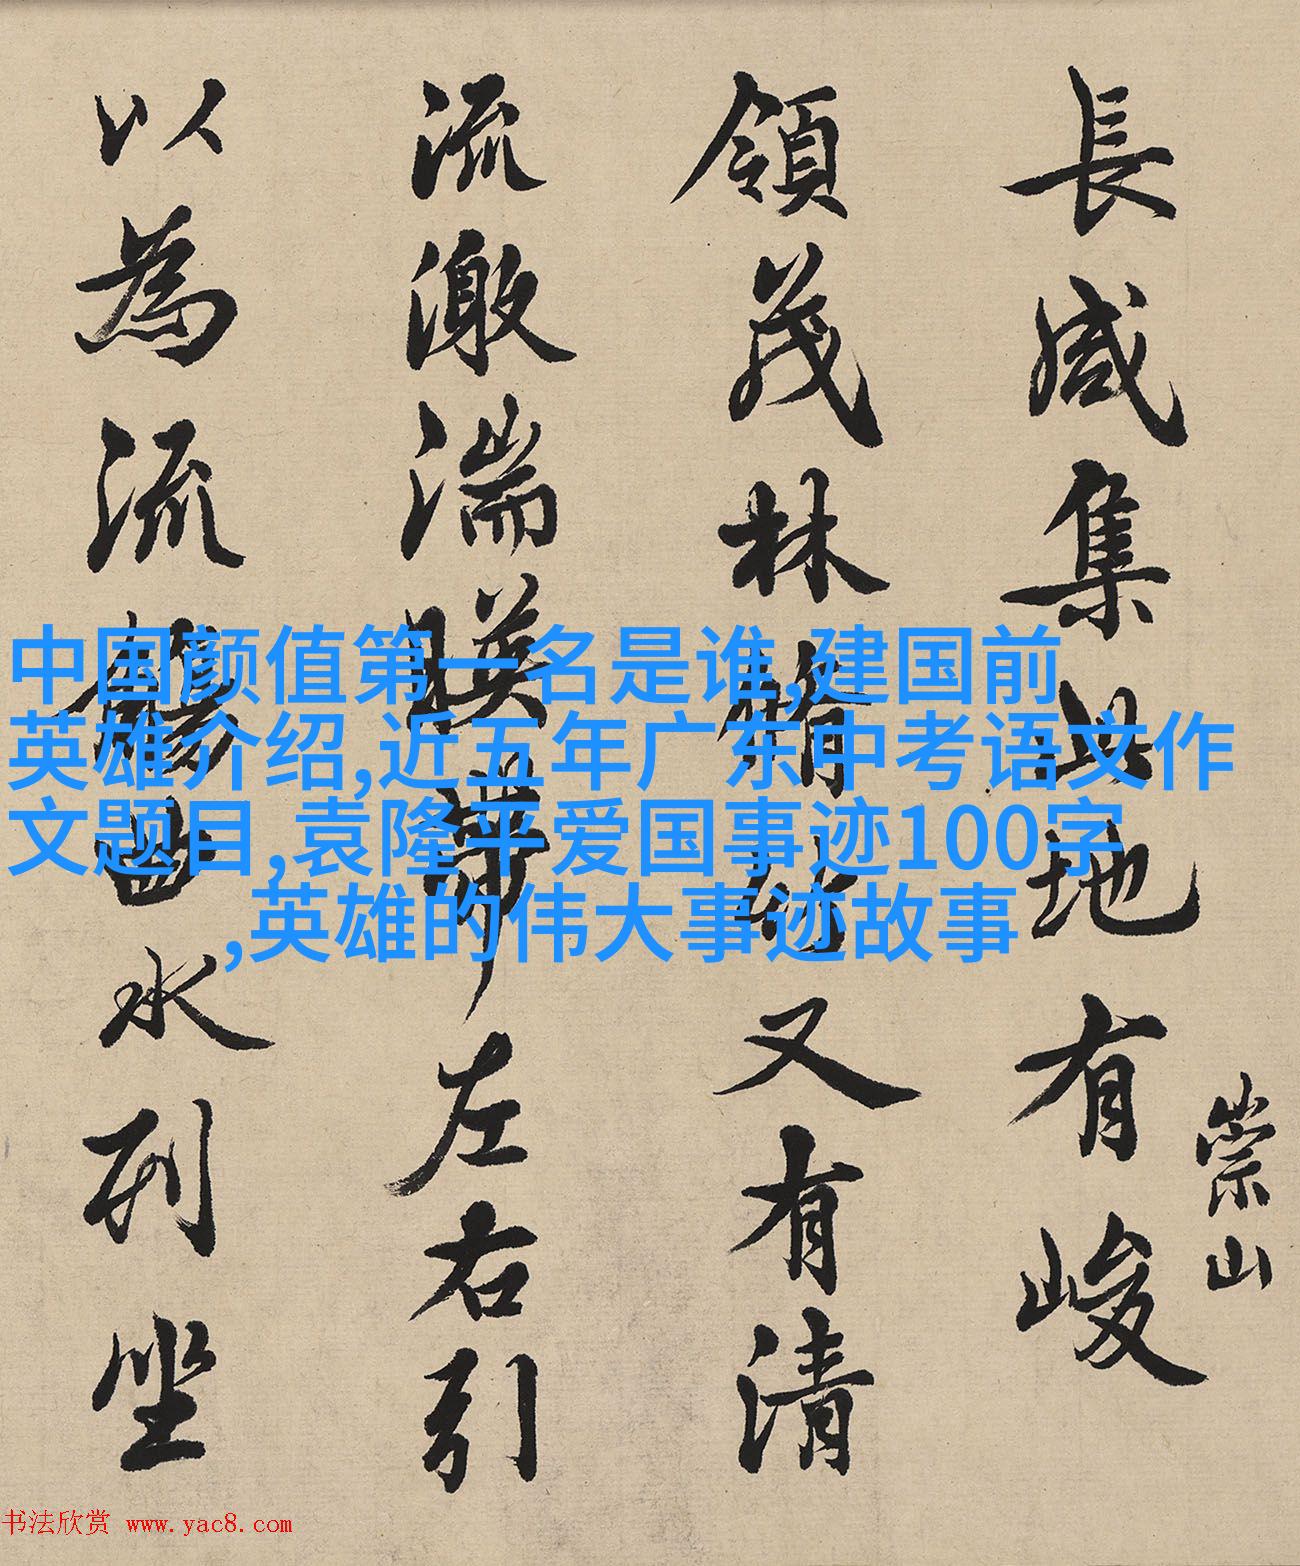 長咸集此地有峻
崇山
領茂林脩竹又有清
流激湍暎帶左右引
以為流觴曲水列坐
中国颜值第一名是谁,建国前
英雄介绍,近五年广东中考语文作
文题目,袁隆平爱国事迹100字
,英雄的伟大事迹故事
书法欣赏 www.yac8.com